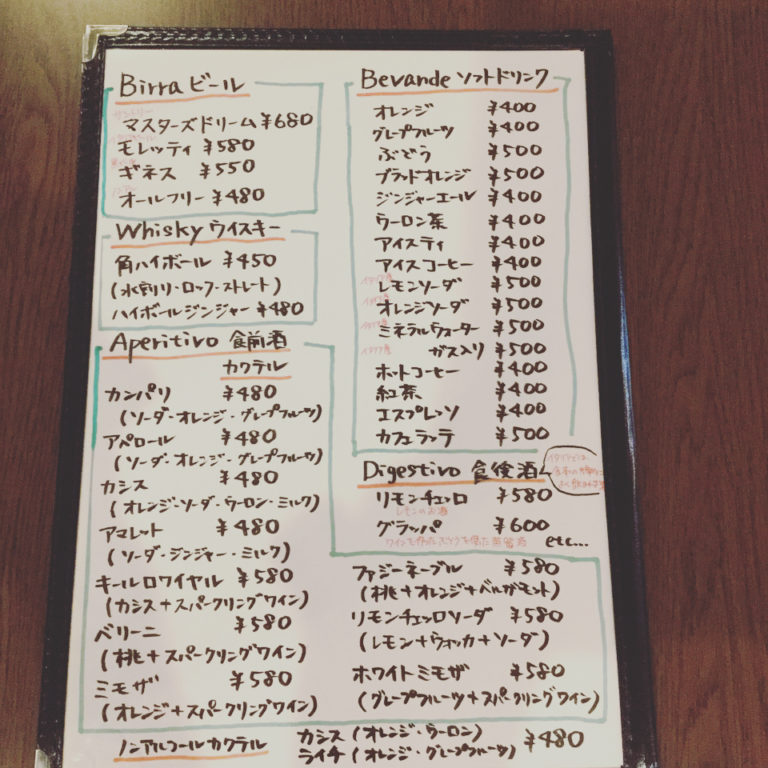 Birra ビール
サントリー
マスターズドリーム ¥680
モレッティ ¥580
ギネス ¥550
オールフリー ¥480
Whisky ウイスキー
角ハイボール ¥450
(水割り・ロック・ストレート)
ハイボールジンジャー ¥480
Aperitivo 食前酒
カクテル
カンパリ ¥480
(ソーダ・オレンジ・グレープフルーツ)
アペロール ¥480
(ソーダ・オレンジ・グレープフルーツ)
カシス ¥480
(オレンジ・ソーダ・ウーロン・ミルク)
アマレット ¥480
(ソーダ・ジンジャー・ミルク)
キールロワイヤル ¥580
(カシス+スパークリングワイン)
ベリーニ ¥580
(桃+スパークリングワイン)
ミモザ ¥580
(オレンジ+スパークリングワイン)
Bevande ソフトドリンク
オレンジ ¥400
グレープフルーツ ¥400
ぶどう ¥500
ブラッドオレンジ ¥500
ジンジャーエール ¥400
ウーロン茶 ¥400
アイスティ ¥400
アイスコーヒー ¥400
イタリア産
レモンソーダ ¥500
イタリア産
オレンジソーダ ¥500
イタリア産
ミネラルウォーター ¥500
イタリア産
ガス入り ¥500
ホットコーヒー ¥400
紅茶 ¥400
エスプレッソ ¥400
カフェラッテ ¥500
Digestivo 食後酒
リモンチェッロ ¥580
レモンのお酒
グラッパ ¥600
etc...
ファジーネーブル ¥580
(桃+オレンジ+ベルガモット)
リモンチェッロソーダ ¥580
(レモン+ウォッカ+ソーダ)
ホワイトミモザ ¥580
(グレープフルーツ+スパークリングワイン)
ノンアルコールカクテル
カシス (オレンジ・ウーロン)
ライチ (オレンジ・グレープフルーツ) ¥480